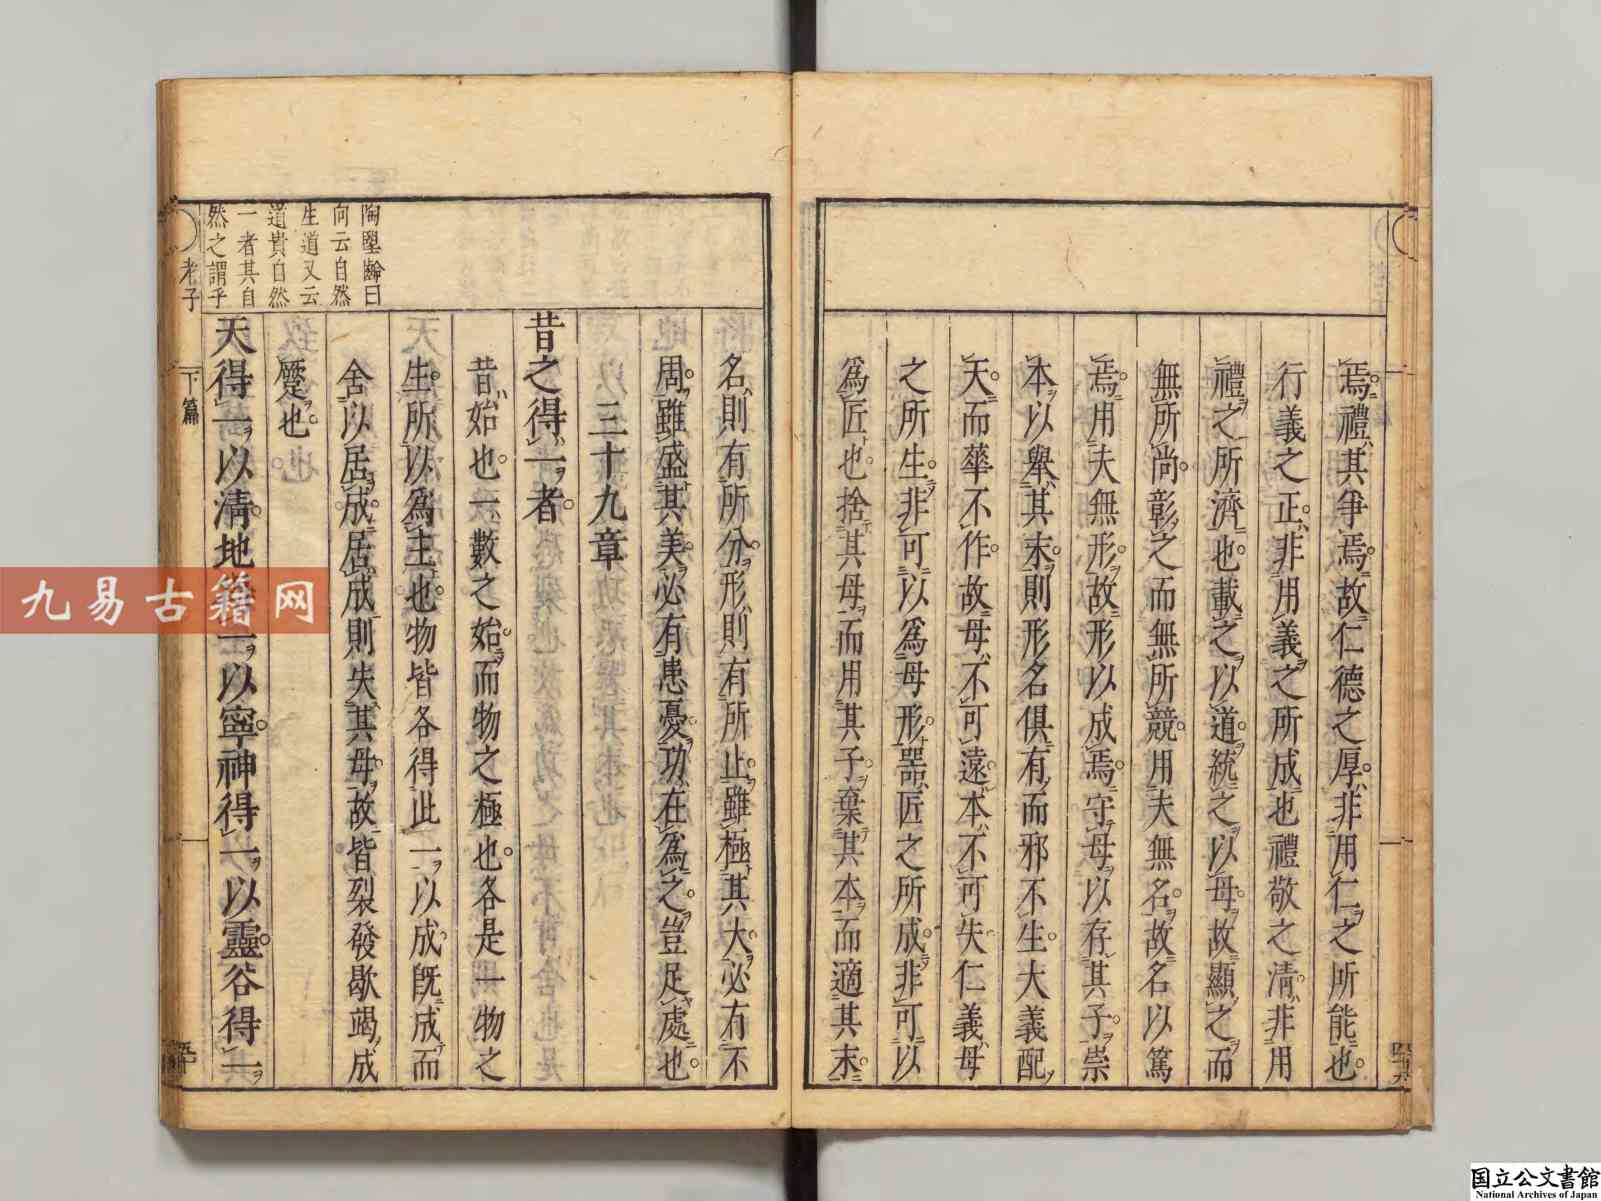 焉禮其爭焉故仁德之厚非用仁之所能也
行義之正非用義之所成也禮敬之清非用
禮之所濟也載之以道統之以母故顯之而
無所尚彰之而無所競用夫無名故名以篤
焉用夫無形故形以成焉守母以存其子崇
本以舉其末則形名俱有而邪不生大美配
天而華不作故母不可遠本不可失仁義母
之所生非可以爲母形器匠之所成非可以
爲匠也捨其母而用其子棄其本而適其末
名則有所分形則有所止雖極其大必有不
周雖盛其美必有患憂功在爲之豈足處也
三十九章
昔之得一者
昔始也一數之始而物之極也各是一物之
生所以爲主也物皆各得此一以成旣成而
舍以居成居成則失其母故皆裂發歇竭
蹷也
天得一以清地得一以寧神得一以靈谷得一
向云自然
生道又云
道貴自然
一者其自
然之謂乎
老子
下篇
九易古籍网
国立公文書館
National Archives of Japan